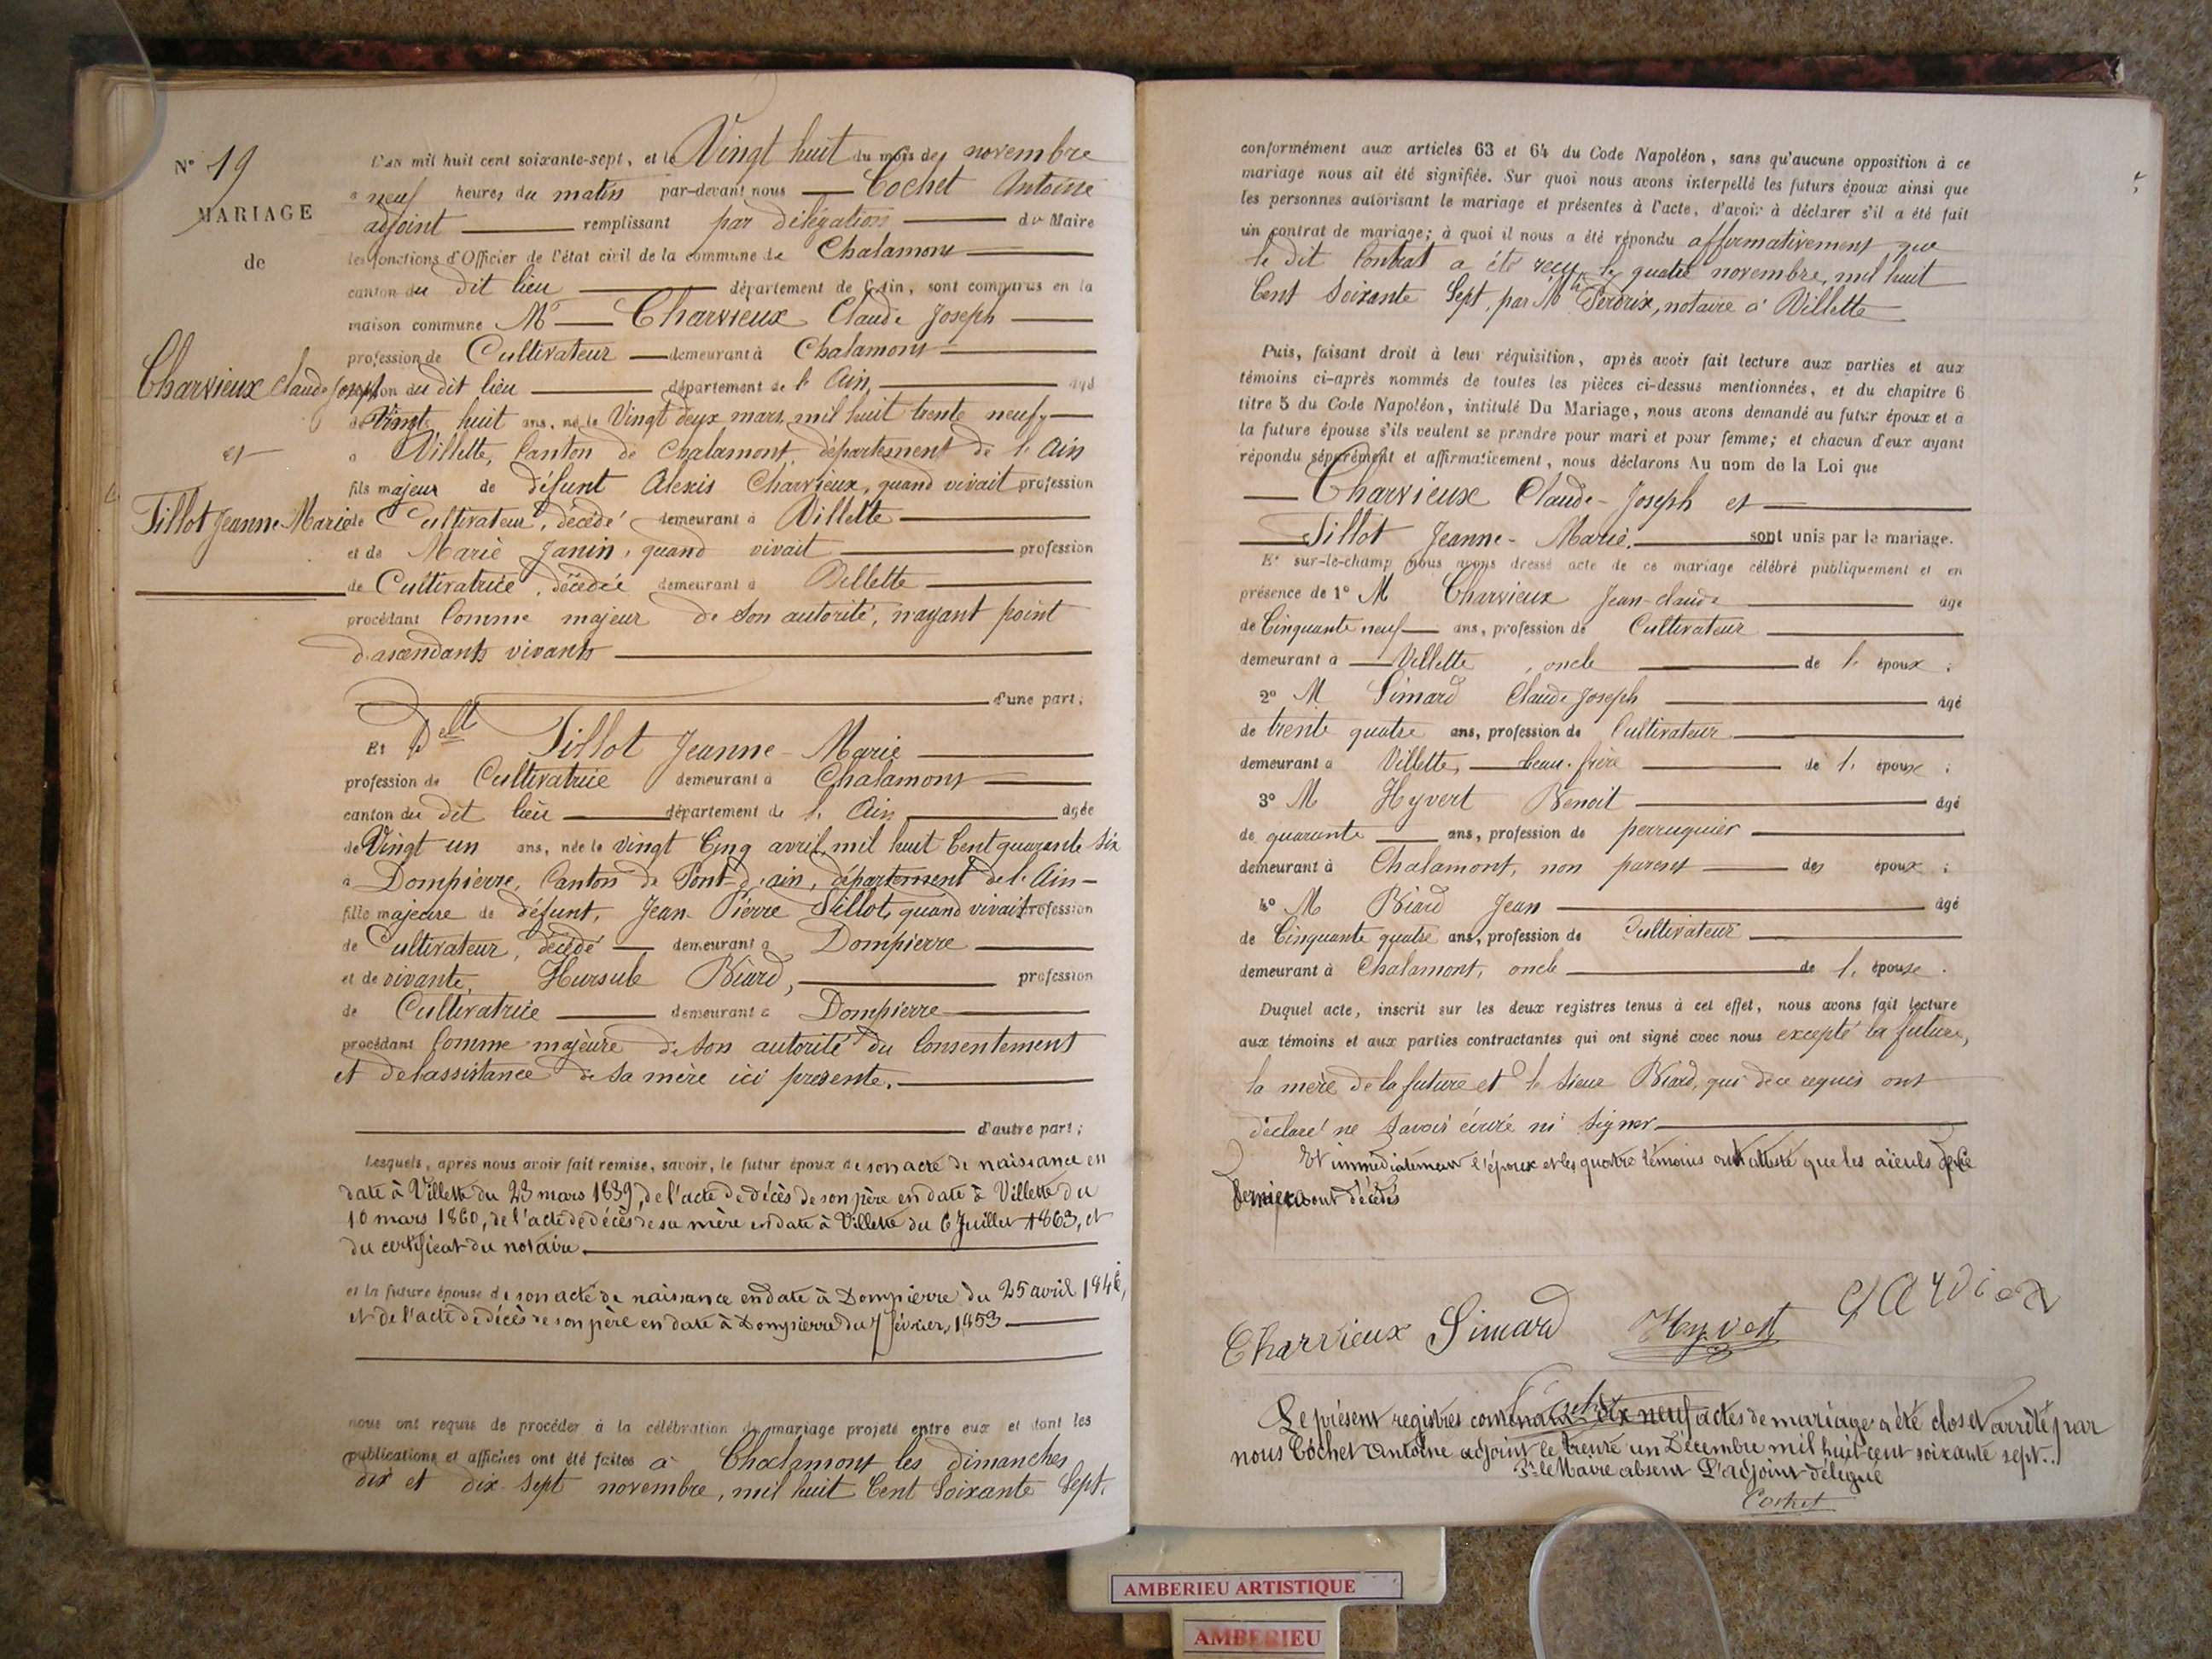 N° 19
MARIAGE
de
Charvieux Claude Joseph
et
Tillot Jeanne-Marie
L'an mil huit cent soixante-sept, et le Vingt huit du mois de novembre
a neuf heures du matin par-devant nous Cochet Antoine
adjoint remplissant par délégation du Maire
les fonctions d'Officier de l'état civil de la commune de Chalamont
canton du dit lieu département de l'Ain, sont comparus en la
maison commune Mr Charvieux Claude Joseph
profession de Cultivateur demeurant à Chalamont
canton du dit lieu département de l'Ain, âgé
de Vingt huit ans, né le Vingt deux mars, mil huit trente neuf
a Villette, Canton de Chalamont, département de l'Ain
fils majeur de défunt Alexis Charvieux, quand vivait profession
de Cultivateur, décédé demeurant à Villette
et de Marie Janin, quand vivait profession
de Cultivatrice, décédée demeurant à Villette
procédant Comme majeur de Son autorité, n'ayant point
d'ascendants vivants
d'une part;
Et Delle Tillot Jeanne-Marie
profession de Cultivatrice demeurant à Chalamont
canton du dit lieu département de l'Ain âgée
de Vingt un ans, née le vingt Cinq avril, mil huit Cent quarante Six
à Dompierre, Canton de Pont-d'ain, département de l'Ain
fille majeure de défunt, Jean-Pierre Tillot, quand vivait profession
de Cultivateur, décédé demeurant à Dompierre
et de vivante, Hursule Biard, profession
de Cultivatrice demeurant à Dompierre
procédant Comme majeure de Son autorité du Consentement
et de l'assistance de Sa mère ici présente.
d'autre part;
Lesquels, après nous avoir fait remise, savoir, le futur époux de son acte de naissance en
date à Villette du 23 mars 1839, de l'acte de décès de son père en date à Villette du
10 mars 1860, de l'acte de décès de sa mère en date à Villette du 6 Juillet 1863, et
du certificat du notaire.
et la future épouse de son acte de naissance en date à Dompierre du 25 avril 1846,
et de l'acte de décès de son père en date à Dompierre du 7 février 1853
nous ont requis de procéder à la célébration du mariage projeté entre eux et dont les
publications et affiches ont été faites à Chalamont les dimanches
dix et dix-Sept novembre, mil huit Cent Soixante Sept.
conformément aux articles 63 et 64 du Code Napoléon, sans qu'aucune opposition à ce
mariage nous ait été signifiée. Sur quoi nous avons interpellé les futurs époux ainsi que
les personnes autorisant le mariage et présentes à l'acte, d'avoir à déclarer s'il a été fait
un contrat de mariage; à quoi il nous a été répondu affirmativement que
le dit Contrat a été reçu le quatre novembre, mil huit
Cent Soixante Sept, par Me Perdrix, notaire à Villette
Puis, faisant droit à leur réquisition, après avoir fait lecture aux parties et aux
témoins ci-après nommés de toutes les pièces ci-dessus mentionnées, et du chapitre 6
titre 5 du Code Napoléon, intitulé Du Mariage, nous avons demandé au futur époux et à
la future épouse s'ils veulent se prendre pour mari et pour femme; et chacun d'eux ayant
répondu séparément et affirmativement, nous déclarons Au nom de la Loi que
Charvieux Claude-Joseph et
Tillot Jeanne-Marie. sont unis par le mariage.
Et sur-le-champ nous avons dressé acte de ce mariage célébré publiquement et en
présence de 1° M Charvieux Jean-claude âgé
de Cinquante neuf ans, profession de Cultivateur
demeurant à Villette, oncle de l'époux;
2° M Simard Claude Joseph âgé
de trente quatre ans, profession de Cultivateur
demeurant à Villette, beau-frère de l'époux;
3° M Hyvert Benoit âgé
de quarante ans, profession de perruquier
demeurant à Chalamont, non parent des époux;
4° M Biard Jean âgé
de Cinquante quatre ans, profession de Cultivateur
demeurant à Chalamont, oncle de l'épouse.
Duquel acte, inscrit sur les deux registres tenus à cet effet, nous avons fait lecture
aux témoins et aux parties contractantes qui ont signé avec nous excepté la future,
la mère de la future et le Sieur Biard, qui de ce requis ont
déclaré ne Savoir écrire ni Signer
Et immédiatement l'époux et les quatre témoins ont attesté que les aïeuls de ce
dernier sont décédés
Charvieux Simard Hyvert
Cochet
Le présent registres contenant dix neuf actes de mariage a été clos et arrêté par
nous Cochet Antoine adjoint le trente un Décembre mil huit cent soixante sept.
Pr le Maire absent L'adjoint délégué
Cochet
AMBERIEU ARTISTIQUE
AMBERIEU